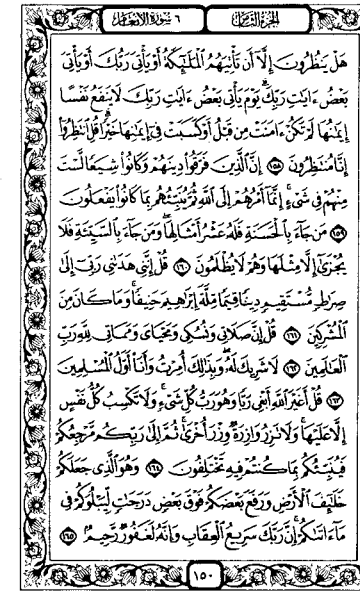 الجزء الثامن ٦ سورة الأنعام
هَلْ يَنظُرُونَ إِلَّآ أَن تَأْتِيَهُمُ ٱلْمَلَٰٓئِكَةُ أَوْ يَأْتِىَ رَبُّكَ أَوْ يَأْتِىَ
بَعْضُ ءَايَٰتِ رَبِّكَ يَوْمَ يَأْتِى بَعْضُ ءَايَٰتِ رَبِّكَ لَا يَنفَعُ نَفْسًا
إِيمَٰنُهَا لَمْ تَكُنْ ءَامَنَتْ مِن قَبْلُ أَوْ كَسَبَتْ فِىٓ إِيمَٰنِهَا خَيْرًا قُلِ ٱنتَظِرُوٓا۟
إِنَّا مُنتَظِرُونَ ١٥٨ إِنَّ ٱلَّذِينَ فَرَّقُوا۟ دِينَهُمْ وَكَانُوا۟ شِيَعًا لَّسْتَ
مِنْهُمْ فِى شَىْءٍ إِنَّمَآ أَمْرُهُمْ إِلَى ٱللَّهِ ثُمَّ يُنَبِّئُهُم بِمَا كَانُوا۟ يَفْعَلُونَ
١٥٩ مَن جَآءَ بِٱلْحَسَنَةِ فَلَهُۥ عَشْرُ أَمْثَالِهَا وَمَن جَآءَ بِٱلسَّيِّئَةِ فَلَا
يُجْزَىٰٓ إِلَّا مِثْلَهَا وَهُمْ لَا يُظْلَمُونَ ١٦٠ قُلْ إِنَّنِى هَدَىٰنِى رَبِّىٓ إِلَىٰ
صِرَٰطٍ مُّسْتَقِيمٍ دِينًا قِيَمًا مِّلَّةَ إِبْرَٰهِيمَ حَنِيفًا وَمَا كَانَ مِنَ
ٱلْمُشْرِكِينَ ١٦١ قُلْ إِنَّ صَلَاتِى وَنُسُكِى وَمَحْيَاىَ وَمَمَاتِى لِلَّهِ رَبِّ
ٱلْعَٰلَمِينَ ١٦٢ لَا شَرِيكَ لَهُۥ وَبِذَٰلِكَ أُمِرْتُ وَأَنَا۠ أَوَّلُ ٱلْمُسْلِمِينَ
١٦٣ قُلْ أَغَيْرَ ٱللَّهِ أَبْغِى رَبًّا وَهُوَ رَبُّ كُلِّ شَىْءٍ وَلَا تَكْسِبُ كُلُّ نَفْسٍ
إِلَّا عَلَيْهَا وَلَا تَزِرُ وَازِرَةٌ وِزْرَ أُخْرَىٰ ثُمَّ إِلَىٰ رَبِّكُم مَّرْجِعُكُمْ
فَيُنَبِّئُكُم بِمَا كُنتُمْ فِيهِ تَخْتَلِفُونَ ١٦٤ وَهُوَ ٱلَّذِى جَعَلَكُمْ
خَلَٰٓئِفَ ٱلْأَرْضِ وَرَفَعَ بَعْضَكُمْ فَوْقَ بَعْضٍ دَرَجَٰتٍ لِّيَبْلُوَكُمْ فِى
مَآ ءَاتَىٰكُمْ إِنَّ رَبَّكَ سَرِيعُ ٱلْعِقَابِ وَإِنَّهُۥ لَغَفُورٌ رَّحِيمٌۢ ١٦٥
١٥٠